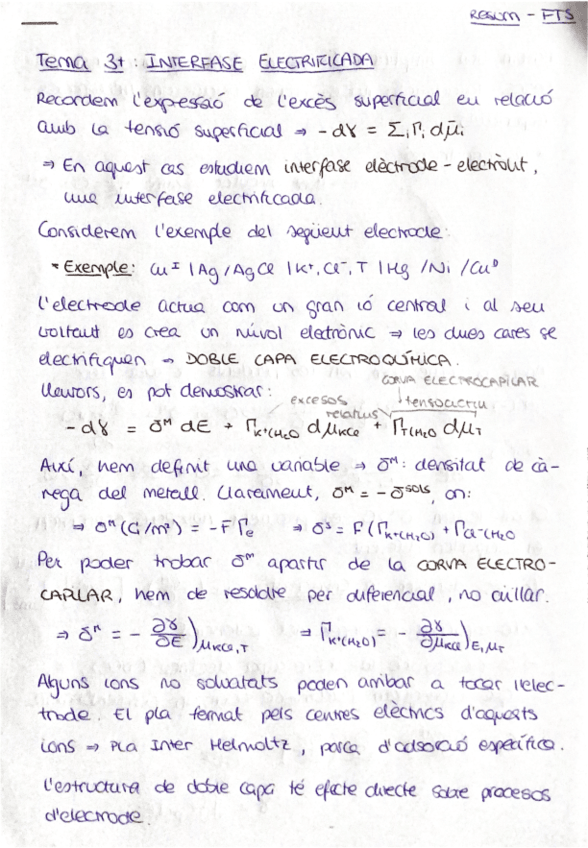 RESUM - FTS
Tema 3+: INTERFASE ELECTRIFICADA
Recordem l'expressió de l'excés superficial en relació
amb la tensió superficial ⇒ -dγ = Σᵢ Γᵢ dμ̃ᵢ
⇒ En aquest cas estudiem interfase elèctrode-electròlit,
una interfase electrificada.
Considerem l'exemple del següent electrode:
• Exemple: Cu^I | Ag / AgCl | K⁺, Cl⁻, T | Hg / Ni / Cu^D
L'electrode actua com un gran ió central i al seu
voltant es crea un núvol elctrònic ⇒ les dues cares se
electrifiquen → DOBLE CAPA ELECTROQUÍMICA.
Llavors, es pot demostrar:
CORVA ELECTROCAPILAR
excesos relatius
tensoactiu
-dγ = σᴹ dE + Γ_K⁺(H₂O) dμ_KCl + Γ_T(H₂O) dμ_T
Així, hem definit una variable ⇒ σᴹ: densitat de cà-
rrega del metall. Clarament, σᴹ = -σ^sols, on:
⇒ σᴹ (C/m²) = -F Γₑ ⇒ σˢ = F(Γ_K⁺(H₂O) + Γ_Cl⁻(H₂O)
Per poder trobar σᴹ apartir de la CORVA ELECTRO-
CAPILAR, hem de resoldre per diferencial, no aïllar.
⇒ σᴹ = - ∂γ/∂E )μ_KCl,T ⇒ Γ_K⁺(H₂O) = - ∂γ/∂μ_KCl )E,μ_T
Alguns ions no solvatats poden arribar a tocar l'elec-
trode. El pla format pels centres elèctrics d'aquests
ions ⇒ Pla Inter Helmoltz, parla d'adsorció específica.
L'estructura de doble capa té efecte directe sobre procesos
d'electrode.